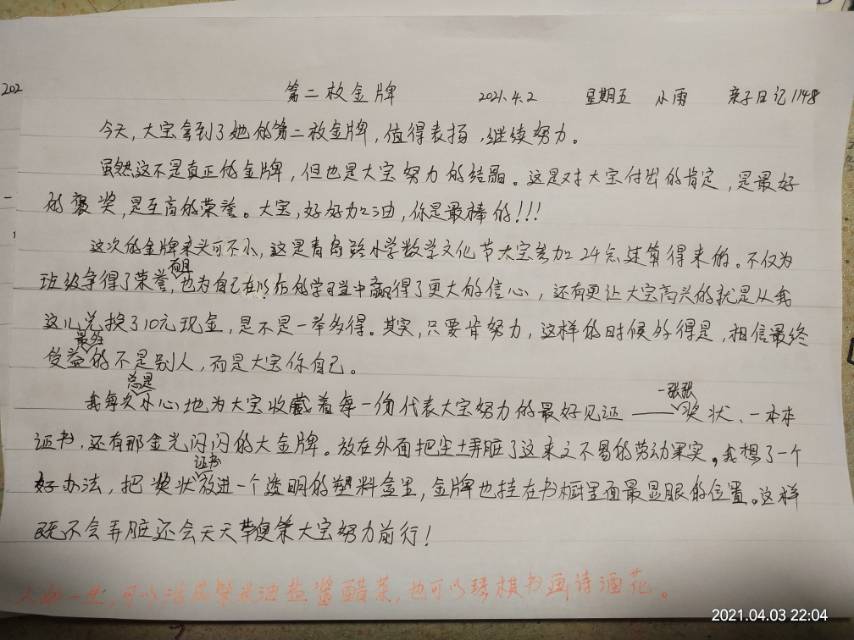 202
第二枚金牌 2021.4.2 星期五 小雨 亲子日记1148
今天,大宝拿到了她的第二枚金牌,值得表扬,继续努力。
虽然这不是真正的金牌,但也是大宝努力的结晶。这是对大宝付出的肯定,是最好
的褒奖,是至高的荣誉。大宝,好好加油,你是最棒的!!!
这次的金牌来头可不小,这是青岛路小学数学文化节大宝参加24点速算得来的。不仅为
班级争得了荣誉,而且也为自己在以后的学习当中赢得了更大的信心,还有更让大宝高兴的就是从我
这儿兑换了10元现金,是不是一举多得。其实,只要肯努力,这样的时候多得是,相信最终
最终受益的不是别人,而是大宝你自己。
我每次总是小心地为大宝收藏着每一份代表大宝努力的最好见证——一张张奖状、一本本
证书,还有那金光闪闪的大金牌。放在外面把尘土弄脏了这来之不易的劳动果实。我想了一个
好办法,把奖状证书放进一个透明的塑料盒里,金牌也挂在书橱里面最显眼的位置。这样
既不会弄脏还会天天鞭策大宝努力前行!
人间一世,可以油盐酱醋茶,也可以琴棋书画诗酒花。
2021.04.03 22:04